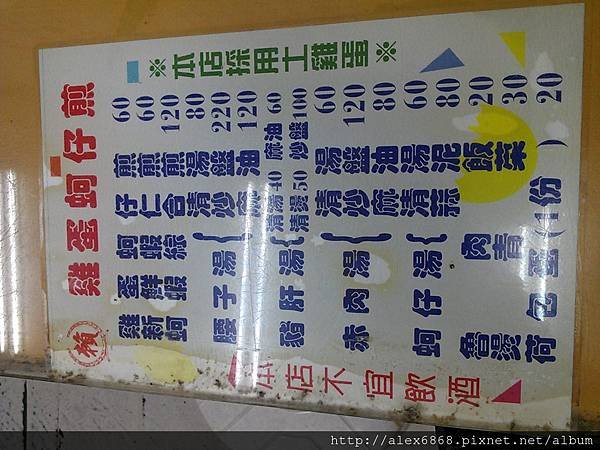 ※本店採用土雞蛋※
賴 雞蛋蚵仔煎
雞蛋蚵仔煎 60
新鮮蝦仁煎 60
蚵蝦綜合煎 120
腰子湯{清湯 80
炒盤 220
麻油 120
豬肝湯{清湯 40 麻油 60
清燙 50 炒盤 100
赤肉湯{清湯 60
炒盤 120
麻油 80
蚵仔湯{清湯 60
蒜泥 80
魯肉飯 20
燙青菜 30
荷包蛋(1份) 20
本店不宜飲酒
http://alex6868.pixnet.net/album